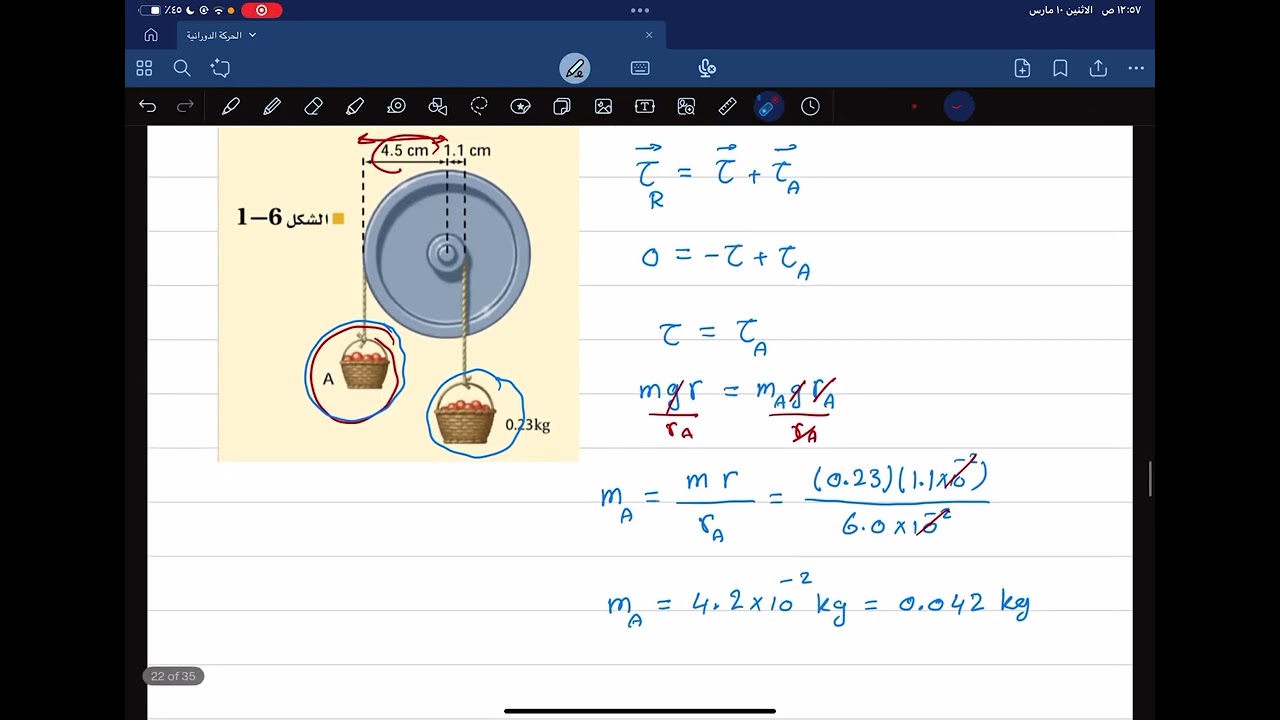 ٪٤٥
١٢:٥٧ ص الاثنين ١٠ مارس
الحركة الدورانية
4.5 cm 1.1 cm
الشكل 6–1
A
0.23kg
τ⃗_R = τ⃗ + τ⃗_A
0 = -τ + τ_A
τ = τ_A
mgr = m_A g r_A
r_A r_A
m_A = m r / r_A = (0.23)(1.1×10⁻²) / 6.0×10⁻²
m_A = 4.2×10⁻² kg = 0.042 kg
22 of 35